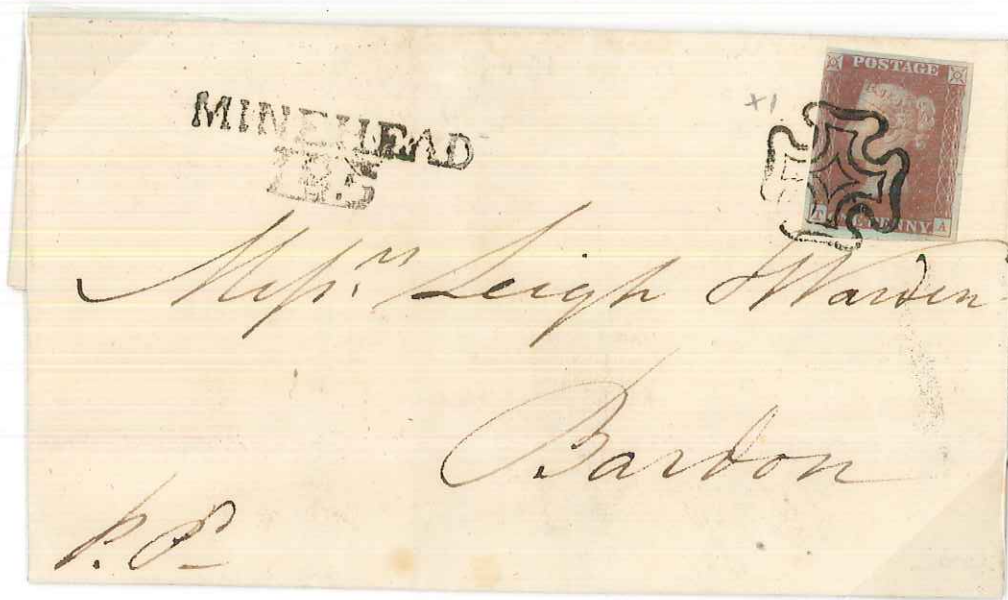 MINEHEAD
+1
POSTAGE
T ONE PENNY A
Messrs. Leigh Warden
Bardon
p. P